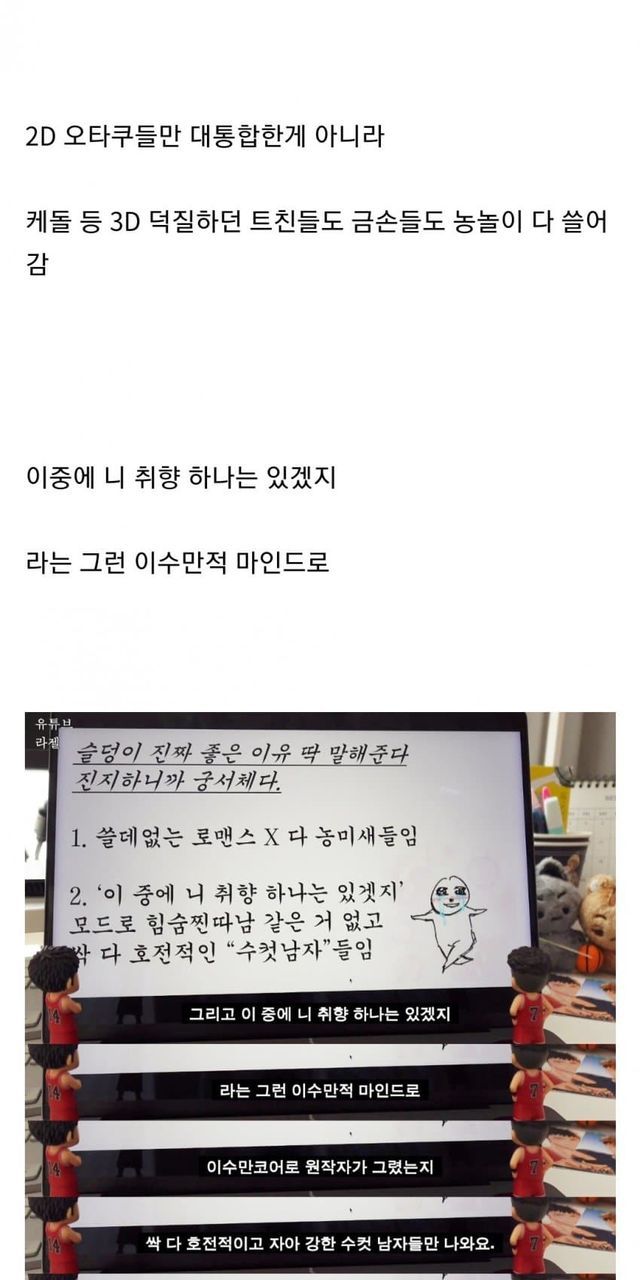 2D 오타쿠들만 대통합한게 아니라
케돌 등 3D 덕질하던 트친들도 금손들도 농놀이 다 쓸어
감
이중에 니 취향 하나는 있겠지
라는 그런 이수만적 마인드로
유튜브
라젤
슬덩이 진짜 좋은 이유 딱 말해준다
진지하니까 궁서체다.
1. 쓸데없는 로맨스 X 다 농미새들임
2. ‘이 중에 니 취향 하나는 있겟지’
모드로 힘숨찐따남 같은 거 없고
싹 다 호전적인 “수컷남자”들임
14
7
그리고 이 중에 니 취향 하나는 있겠지
14
7
라는 그런 이수만적 마인드로
14
7
이수만코어로 원작자가 그렸는지
14
7
싹 다 호전적이고 자아 강한 수컷 남자들만 나와요.